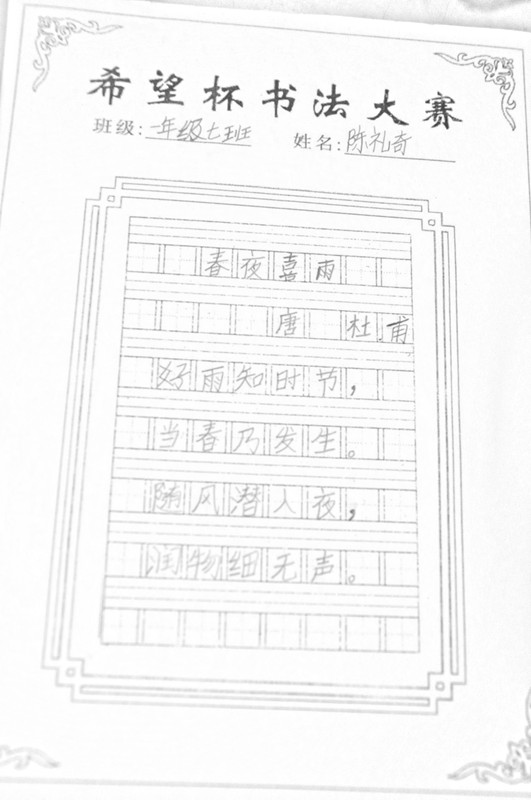 希望杯书法大赛
班级：一年级七班 姓名：陈礼奇
春夜喜雨
唐 杜甫
好雨知时节，
当春乃发生。
随风潜入夜，
润物细无声。